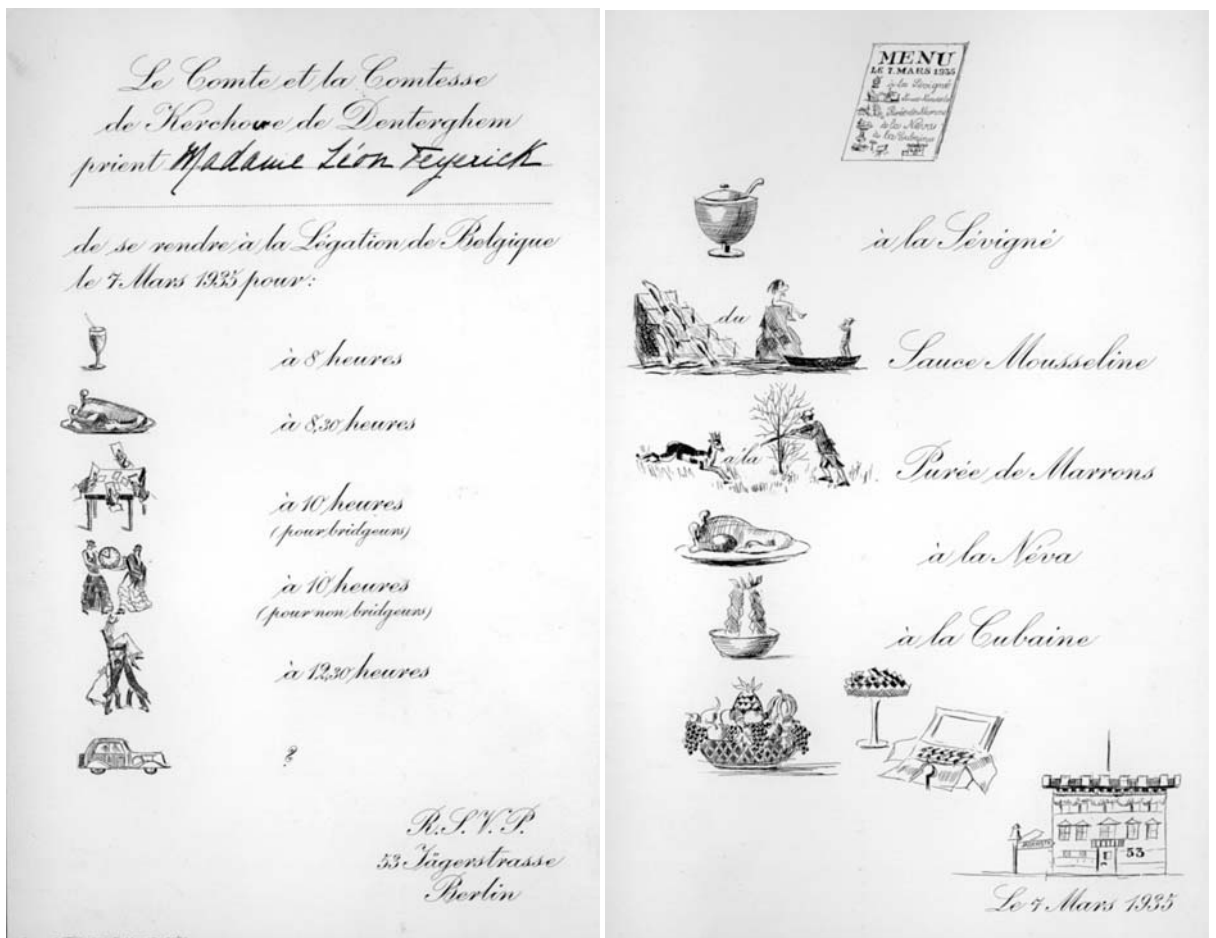 Le Comte et la Comtesse
de Kerchove de Denterghem
prient Madame Léon Feyerick
de se rendre à la Légation de Belgique
le 7 Mars 1935 pour:
à 8 heures
à 8,30 heures
à 10 heures
(pour bridgeurs)
à 10 heures
(pour non bridgeurs)
à 12,30 heures
?
R.S.V.P.
53 Jägerstrasse
Berlin
MENU
LE 7. MARS 1935
à la Sévigné
à la Néva
à la Cubaine
à la Sévigné
du
Sauce Mousseline
à la
Purée de Marrons
à la Néva
à la Cubaine
53
Le 7 Mars 1935